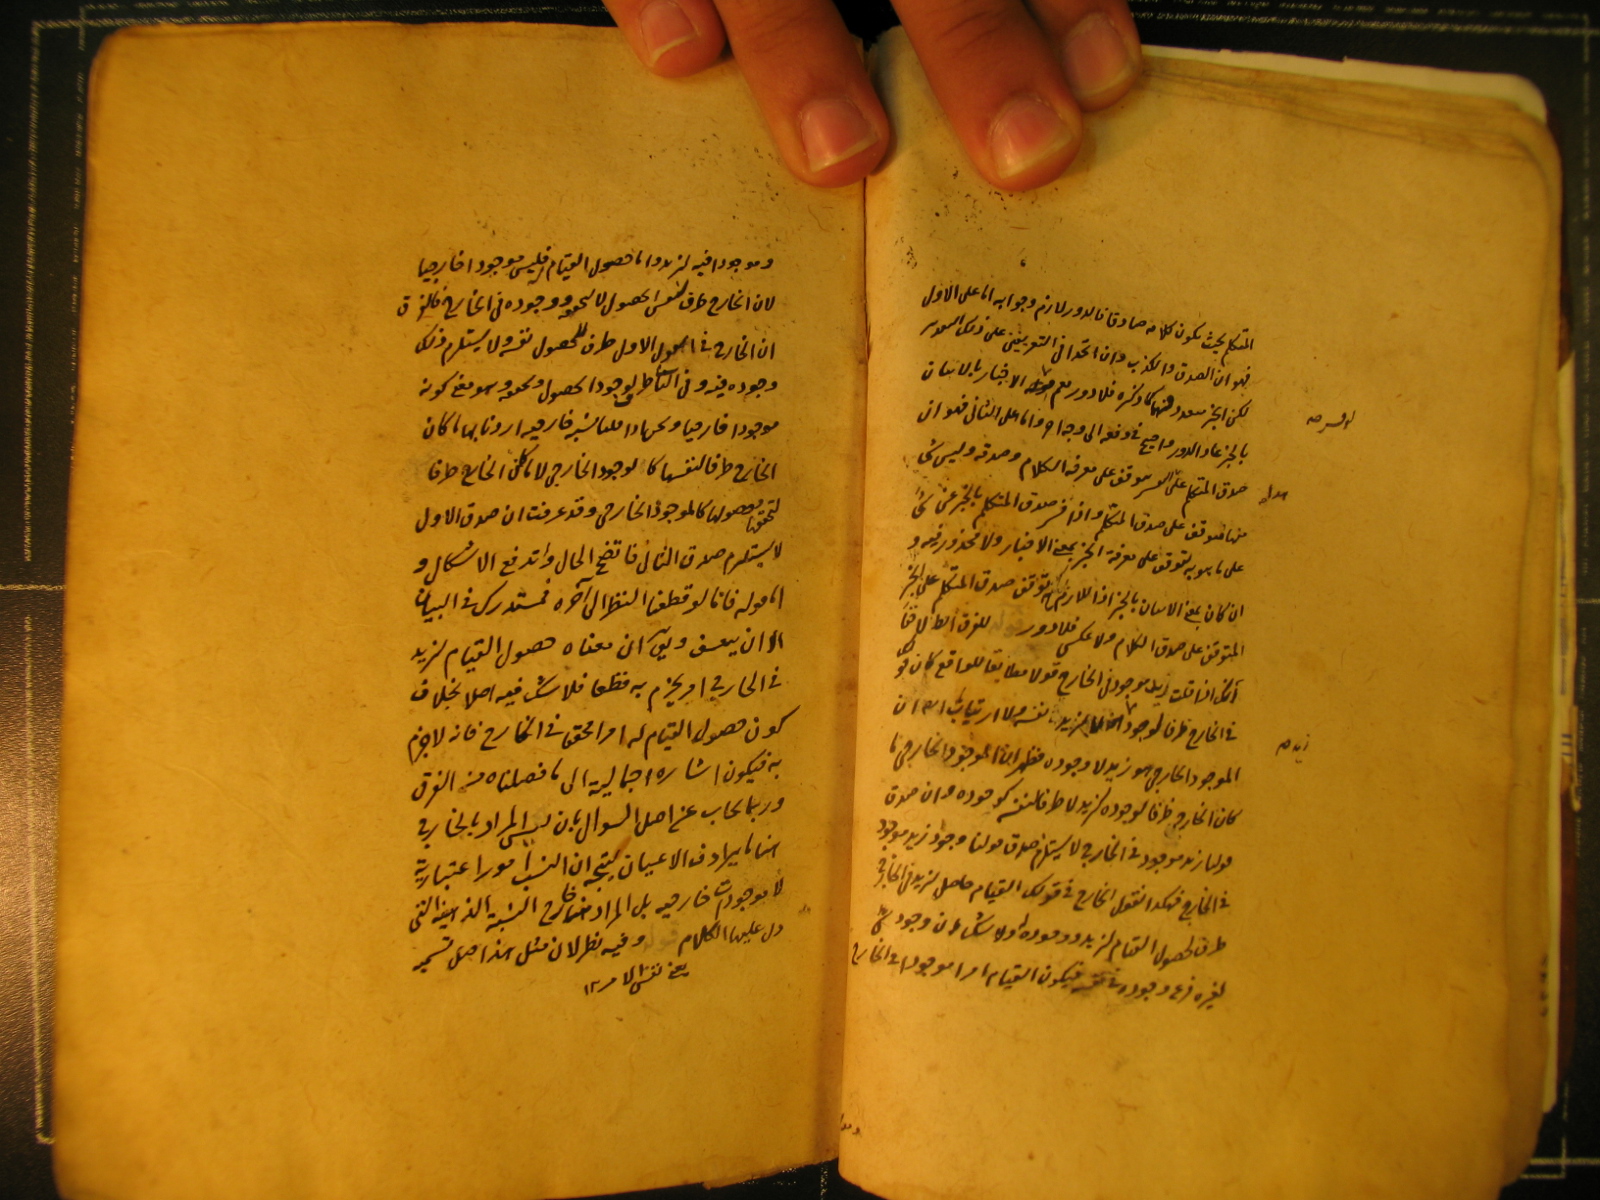 المتكلم بحيث يكون كلامه صادقا فالدور لازم وجوابه اما على الاول
فهو ان الصدق والكذب وان اتحدا في التعريفين على ذلك
لكن الخبر كما ذكره فلا دور مع الاخبار بالاتيان
بالخبر عاد الدور واحتج في دفعه الى وجه اخر واما على الثاني فهو ان
صدق المتكلم على موقف على معرفة الكلام وصدقه وليس شي
منها يتوقف على صدق المتكلم واذا فسر صدق المتكلم بالخبر عن شي
على ما هو به يتوقف على معرفة الخبر بمعنى الاخبار ولا محذور فيه و
ان كان بمعنى الاتيان بالخبر اذ اللازم توقف صدق المتكلم على الخبر
المتوقف على صدق الكلام ولا عكس فلا دور قوله للفرق الظاهر
انك اذا قلت زيد موجود في الخارج قولا مطابقا للواقع كان قو
في الخارج ظرفا لوجود زيد نفسه ولا ارتياب ان
الموجود الخارجي هو زيد لا وجوده فظهر ان الموجود الخارجي ما
كان الخارج ظرفا لوجوده كزيد لا ظرفا لنفسه كوجوده وان صدق
قولنا زيد موجود في الخارج لا يستلزم صدق قولنا وجود زيد موجود
في الخارج فهكذا نقول الخارج في قولك القيام حاصل لزيد في الخارج
ظرف لحصول القيام لزيد ووجوده له ولا شك ان وجود شي
لغيره فرع وجوده في نفسه فيكون القيام امرا موجودا في الخارج
وموجودا فيه لزيد واما حصول القيام له فليس موجودا خارجيا
لان الخارج ظرف لنفس الحصول لا لتحققه ووجوده في الخارج فالفرق
ان الخارج في الاول ظرف للحصول نفسه ولا يستلزم ذلك
وجوده فيه وفي الثاني ظرف لوجود الحصول وتحققه وهو معنى كونه
موجودا خارجيا ما كان
الخارج ظرفا لنفسها كالوجود الخارجي لا ما كان الخارج ظرفا
لتحققها وحصولها كالموجود الخارجي وقد عرفت ان صدق الاول
لا يستلزم صدق الثاني فاتضح الحال واندفع الاشكال و
اما قوله فانا لو قطعنا النظر الى آخره فمستدرك في البيان
الا ان يتعسف ويق ان معناه حصول القيام لزيد
في الخارج امر يجزم به قطعا فلا شك فيه اصلا بخلاف
كون حصول القيام له امرا محققا في الخارج فانه لا جزم
به فيكون اشارة اجمالية الى ما فصلناه من الفرق
وربما يجاب عن اصل السؤال بان ليس المراد بالخارج
هنا ما يرادف الاعيان ليتجه ان النسب امورا اعتبارية
لا موجودات خارجية بل المراد خارج النسبة الذهنية التي
دل عليها الكلام قوله وفيه نظر لان مثل هذا
يعني نفس الامر ١٢